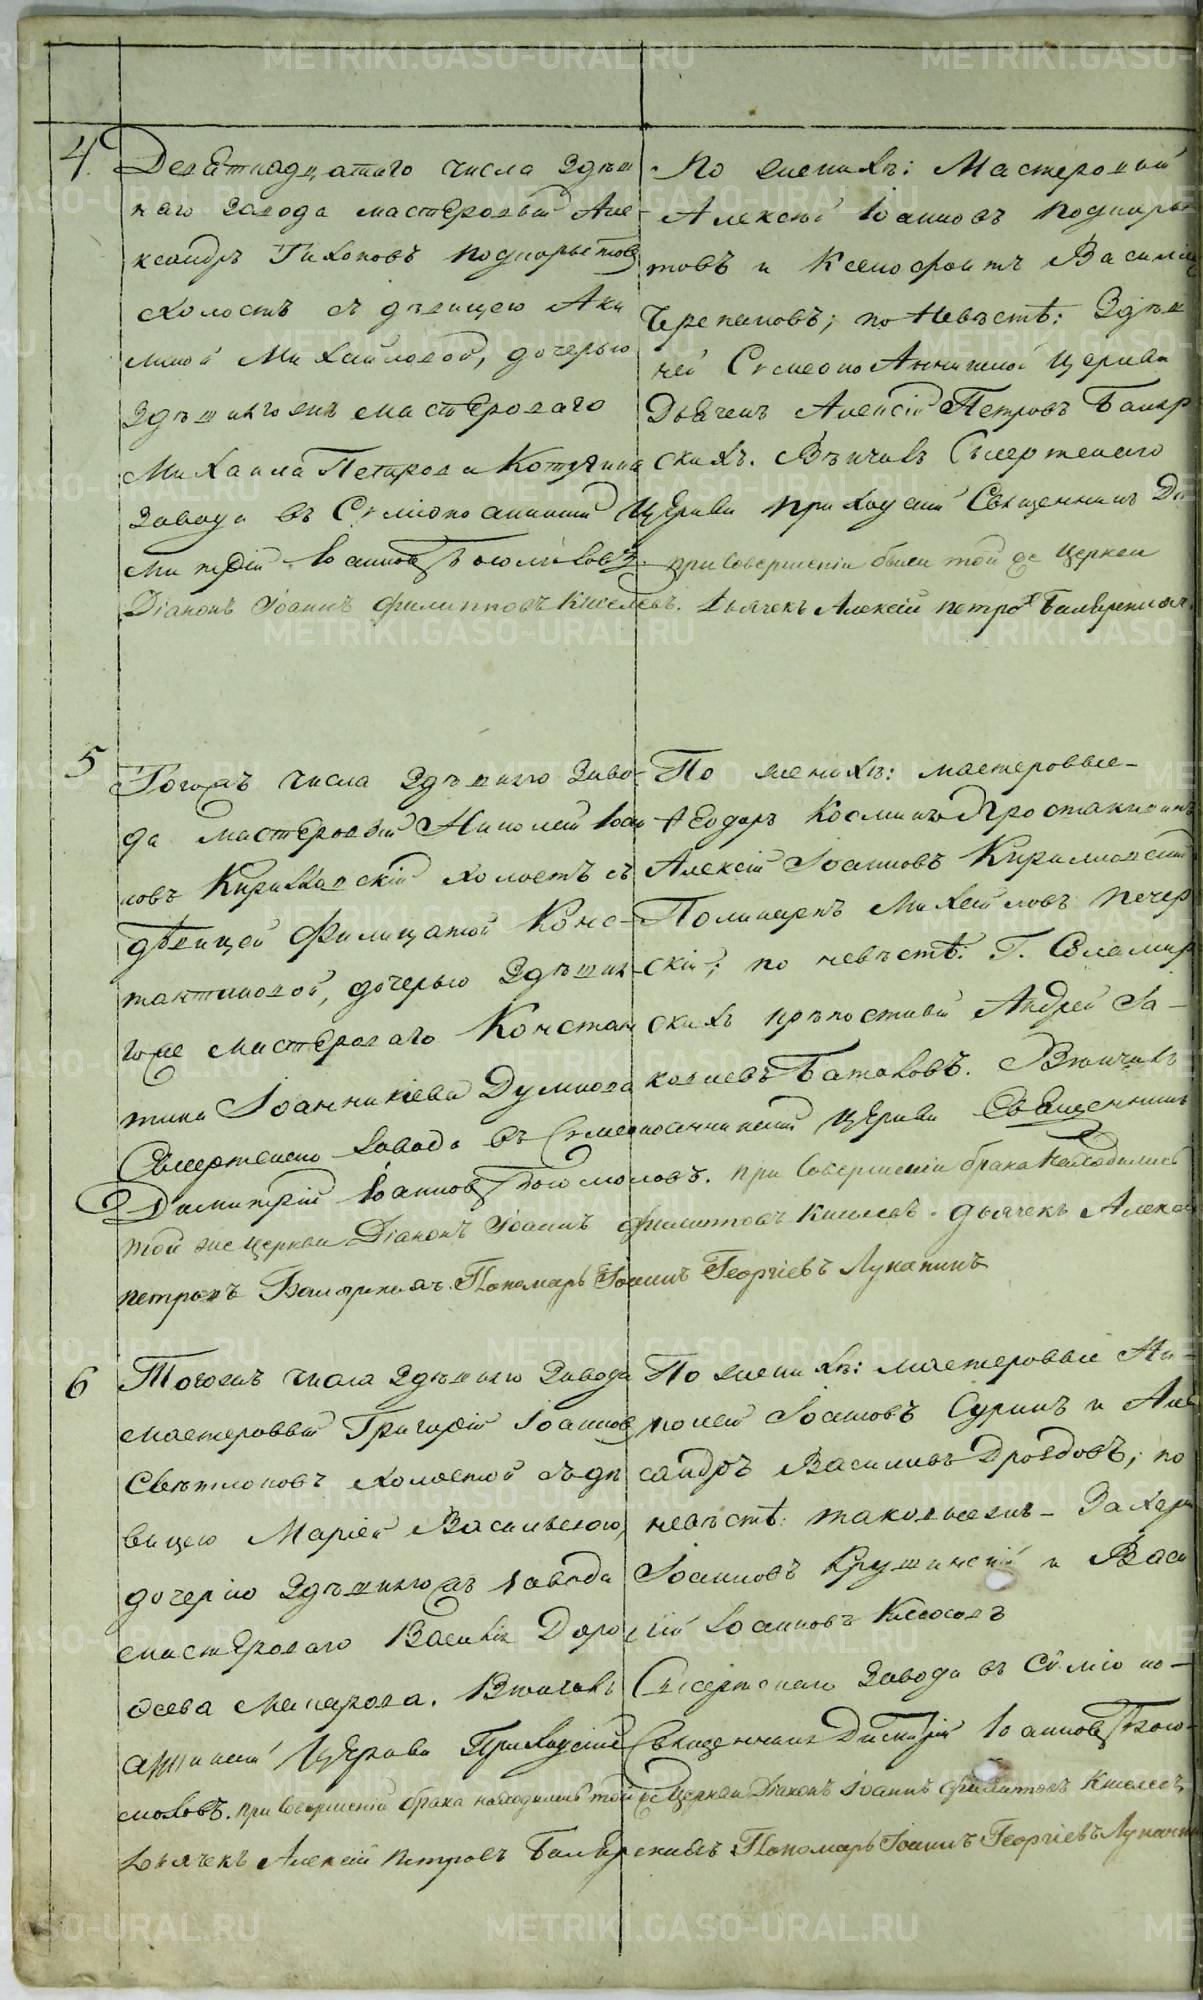 4.
Девятнадцатаго числа Здѣш
няго завода мастеровый Але
ксандръ Тихоновъ Подкорытов
холостъ съ дѣвицею Аки
линой Михайловой, дочерью
Здѣшнягожъ мастероваго
Михаила Петрова Котугина
По женихѣ: Мастеровый
Алексѣй Іоанновъ Подкоры
товъ и Ксенофонтъ Васильи
Черепановъ; по Невѣстѣ: Здѣш
ней Сѵмеоно Аннинской Церкви
Дьячекъ Алексій Петровъ
скихъ. Вѣнчалъ Сысертскаго
завода въ Сѵмеоноаннинской Церкви приходскій Священникъ Ди
митрій Іоанновъ Богомоловъ. при Совершеніи были той же Церкви
Діаконъ Іоаннъ Филипповъ Киселевъ. Дьячекъ Алексій петров
5
Тогожъ числа Здѣшняго Заво-
да мастеровый Николай Іоан
новъ Кирилловскій холостъ съ
дѣвицей Филицатой Конс-
тантиновой, дочерью Здѣшня-
гоже мастероваго Констан
тина Іоанникіева Думнова
По женихѣ: мастеровые-
Ѳеодоръ Косминъ Простакишинъ
Алексій Іоанновъ Кирилловскій
Поликарпъ Михайловъ Печер
скій; по невѣстѣ: Г. Соломир
скихъ крѣпостный Андрей Іа-
ковлевъ Батаковъ. Вѣнчалъ
Сысертскаго завода въ Сѵмеоноаннинской Церкви Священникъ
Димитрій Іоанновъ Богомоловъ. при Совершеніи брака Находились
той же церкви Діаконъ Іоаннъ Филиповъ Киселевъ. дьячекъ Алексій
петровъ Пономарь Іоаннъ Георгіевъ Лукапинъ
6
Тогожъ числа Здѣшняго Завода
мастеровый Григорій Іоаннов
Свѣтлоновъ холостой съ дѣ
вицею Маріей Васильевою,
дочерію Здѣшнягожъ завода
мастероваго Василія Доро
ѳеева Макарова. Вѣнчалъ
По женихѣ: мастеровые Ни-
колай Іоанновъ Суринъ и Алек
сандръ Васильевъ Дроздовъ; по
невѣстѣ: таковыежъ- Захаръ
Іоанновъ Крушинскій и Васи
лій Іоанновъ
Сысертскаго Завода въ Сѵмео но-
аннинской Церкви Приходскій Священникъ Димитрій Іоанновъ Бого-
моловъ. при Совершеніи брака находились той же Церкви Діаконъ Іоаннъ Филиповъ Киселевъ,
Дьячекъ Алексій Петровъ Пономарь Іоаннъ Георгіевъ Лукапин
METRIKI.GASO-URAL.RU